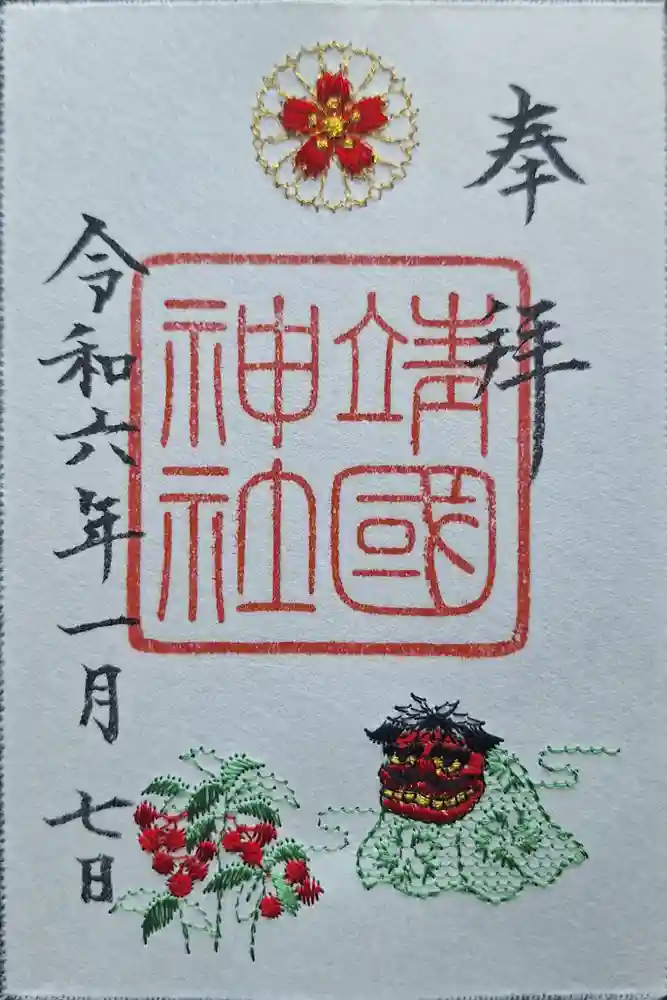 奉拝
靖國
神社
令和六年一月七日